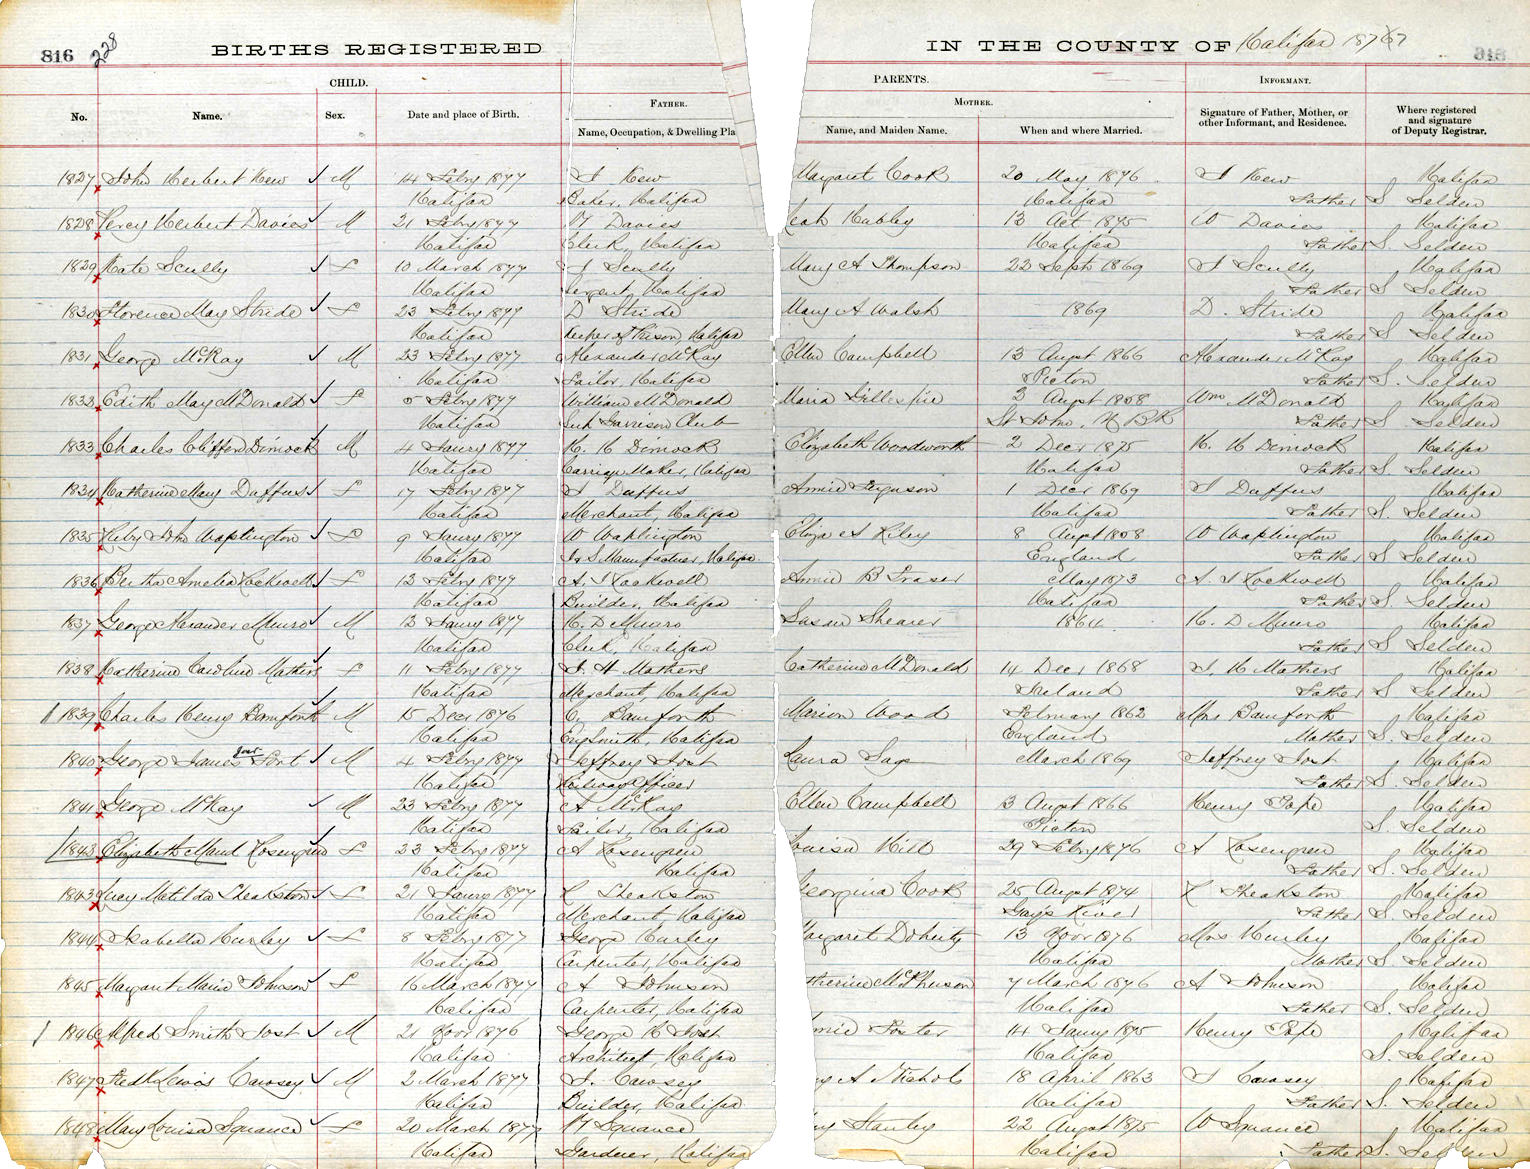 816 228 BIRTHS REGISTERED IN THE COUNTY OF Halifax 1877 816
CHILD. PARENTS. INFORMANT.
No. Name. Sex. Date and place of Birth. FATHER. MOTHER. Signature of Father, Mother, or other Informant, and Residence. Where registered and signature of Deputy Registrar.
Name, Occupation, & Dwelling Pla Name, and Maiden Name. When and where Married.
1827 John Herbert Hew M 14 Febry 1877 J Hew Margaret Cook 20 May 1876 J Hew Halifax
Halifax Baker, Halifax Halifax Father S Selden
1828 Percy Herbert Davies M 21 Febry 1877 W Davies Leah Hubley 13 Oct 1875 W Davies Halifax
Halifax Clerk, Halifax Halifax Father S. Selden
1829 Kate Scully F 10 March 1877 J Scully Mary A Thompson 22 Septr 1869 J Scully Halifax
Halifax Sergent, Halifax Father S Selden
1830 Florence May Stride F 23 Febry 1877 D Stride Mary A Walsh 1869 D. Stride Halifax
Halifax Keeper of Prison, Halifax Father S Selden
1831 George McKay M 23 Febry 1877 Alexander McKay Ellen Campbell 13 Augst 1866 Alexander McKay Halifax
Halifax Sailor, Halifax Pictou Father S. Selden
1832 Edith May McDonald F 5 Febry 1877 William McDonald Maria Gillespie 3 Augst 1868 Wm McDonald Halifax
Halifax Garrison Club St John, N BK Father S Selden
1833 Charles Clifford Dimock M 4 Janry 1877 H. H Dimock Elizabeth Woodworth 2 Decr 1875 H. H Dimock Halifax
Halifax Carriage Maker, Halifax Halifax Father S. Selden
1834 Katherine Mary Duffus F 17 Febry 1877 J Duffus Annie Ferguson 1 Decr 1869 J Duffus Halifax
Halifax Merchant, Halifax Halifax Father S. Selden
1835 John Waplington F 9 Janry 1877 W Waplington Eliza A Riley 8 Augst 1868 W Waplington Halifax
Halifax Manufacturer, Halifax England Father S Selden
1836 Bertha Amelia Rockwell F 12 Febry 1877 A. J Rockwell Annie B Fraser May 1873 A. J Rockwell Halifax
Halifax Builder, Halifax Halifax Father S. Selden
1837 George Alexander Munro M 12 Janry 1877 H. D Munro Susan Shearer 1864 H. D Munro Halifax
Halifax Clerk, Halifax Father S Selden
1838 Katherine Caroline Mathers F 11 Febry 1877 I. H Mathers Catherine McDonald 14 Decr 1868 I. H Mathers Halifax
Halifax Merchant Halifax Ireland Father S Selden
1839 Charles Henry Bamforth M 15 Decr 1876 C. Bamforth Marion Wood February 1862 Mrs Bamforth Halifax
Halifax Smith, Halifax England Mother S. Selden
1840 George James Jost M 4 Febry 1877 Jeffrey Jost Laura Sage March 1869 Jeffrey Jost Halifax
Halifax Railway Officer Father S. Selden
1841 George McKay M 23 Febry 1877 A McKay Ellen Campbell 13 Augst 1866 Henry Pope Halifax
Halifax Sailor, Halifax Pictou S. Selden
1842 Elizabeth Maud Rosengren F 23 Febry 1877 A Rosengren ouisa Hill 29 Febry 1876 A Rosengren Halifax
Halifax Halifax Father S. Selden
1843 Lucy Matilda Theakston F 21 Janry 1877 R Theakston Georgina Cook 25 Augst 1874 R Theakston Halifax
Halifax Merchant, Halifax Gays River Father S. Selden
1844 Isabella Hurley F 8 Febry 1877 George Hurley argaret Doherty 13 Novr 1876 Mrs Hurley Halifax
Halifax Carpenter, Halifax Halifax Mother S. Selden
1845 Margaret Maria Johnson F 16 March 1877 A Johnson therine McPherson 7 March 1876 A Johnson Halifax
Halifax Carpenter, Halifax Halifax Father S. Selden
1846 Alfred Smith Jost M 21 Novr 1876 George H Jost nnie Foster 14 Janry 1875 Henry Pope Halifax
Halifax Architect, Halifax Halifax S. Selden
1847 Fredk Lewis Cawsey M 2 March 1877 J. Cawsey A Nichols 18 April 1863 J Cawsey Halifax
Halifax Builder, Halifax Halifax Father S. Selden
1848 Mary Louisa Squance F 20 March 1877 W Squance Stanley 22 Augst 1875 W Squance Halifax
Halifax Gardener, Halifax Halifax Father S. Selden